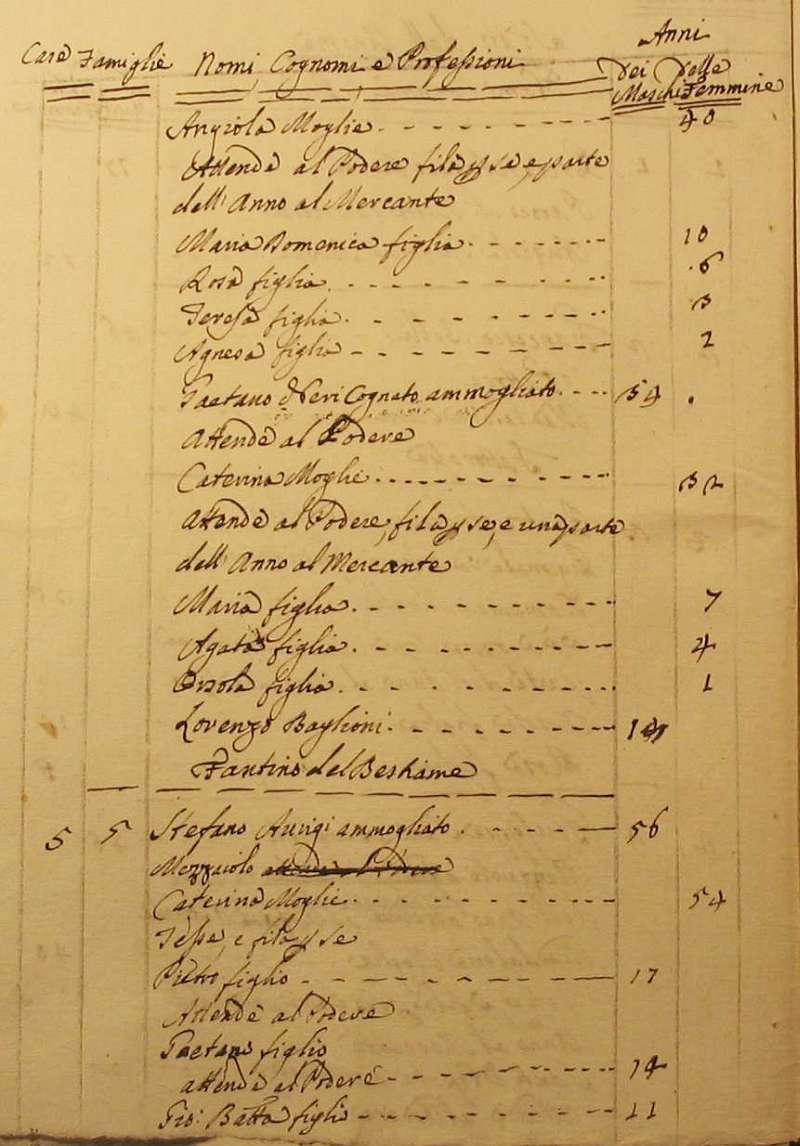 Anni
Case Famiglie Nomi, Cognomi e Professioni dei delle
Maschi Femmine
Angiola Moglie 40
Attende al Podere fila p se, e parte
dell' Anno al Mercante
Maria Domenica figlia 10
Rosa figlia 6
Teresa figlia 3
Agnesa figlia 2
Gaetano Neri Cognato ammogliato 54
Attende al Podere
Caterina Moglie 32
Attende al Podere, fila p se, e una parte
dell' Anno al Mercante
Maria figlia 7
Agata figlia 4
Orsola figlia 1
Lorenzo Baglioni
Fantino del Bestiame
5 5 Stefano ammogliato 56
Mezzaiolo attende al Podere
Caterina Moglie 54
Tesse, e fila p se
Pietro figlio 17
Attende al Podere
Gaetano figlio
attende al Podere 14
Gio: Batta figlio 11